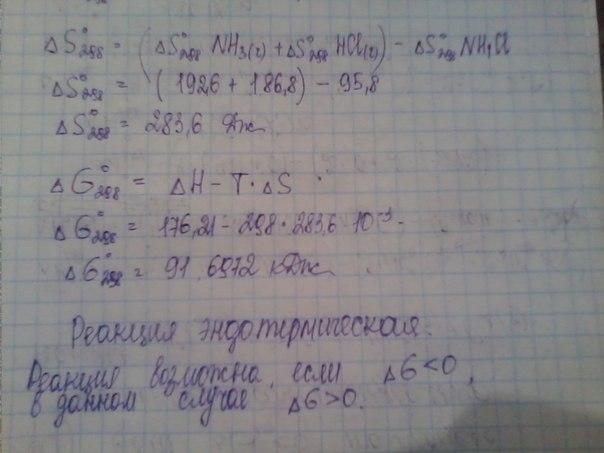 ΔS°298 = (ΔS°298 NH3(г) + ΔS°298 HCl(г)) - ΔS°298 NH4Cl
ΔS°298 = (192,6 + 186,8) - 95,8
ΔS°298 = 283,6 Дж
ΔG°298 = ΔH - T·ΔS
ΔG°298 = 176,21 - 298·283,6·10⁻³
ΔG°298 = 91,6972 кДж
Реакция эндотермическая.
Реакция возможна, если ΔG<0,
в данном случае ΔG>0.